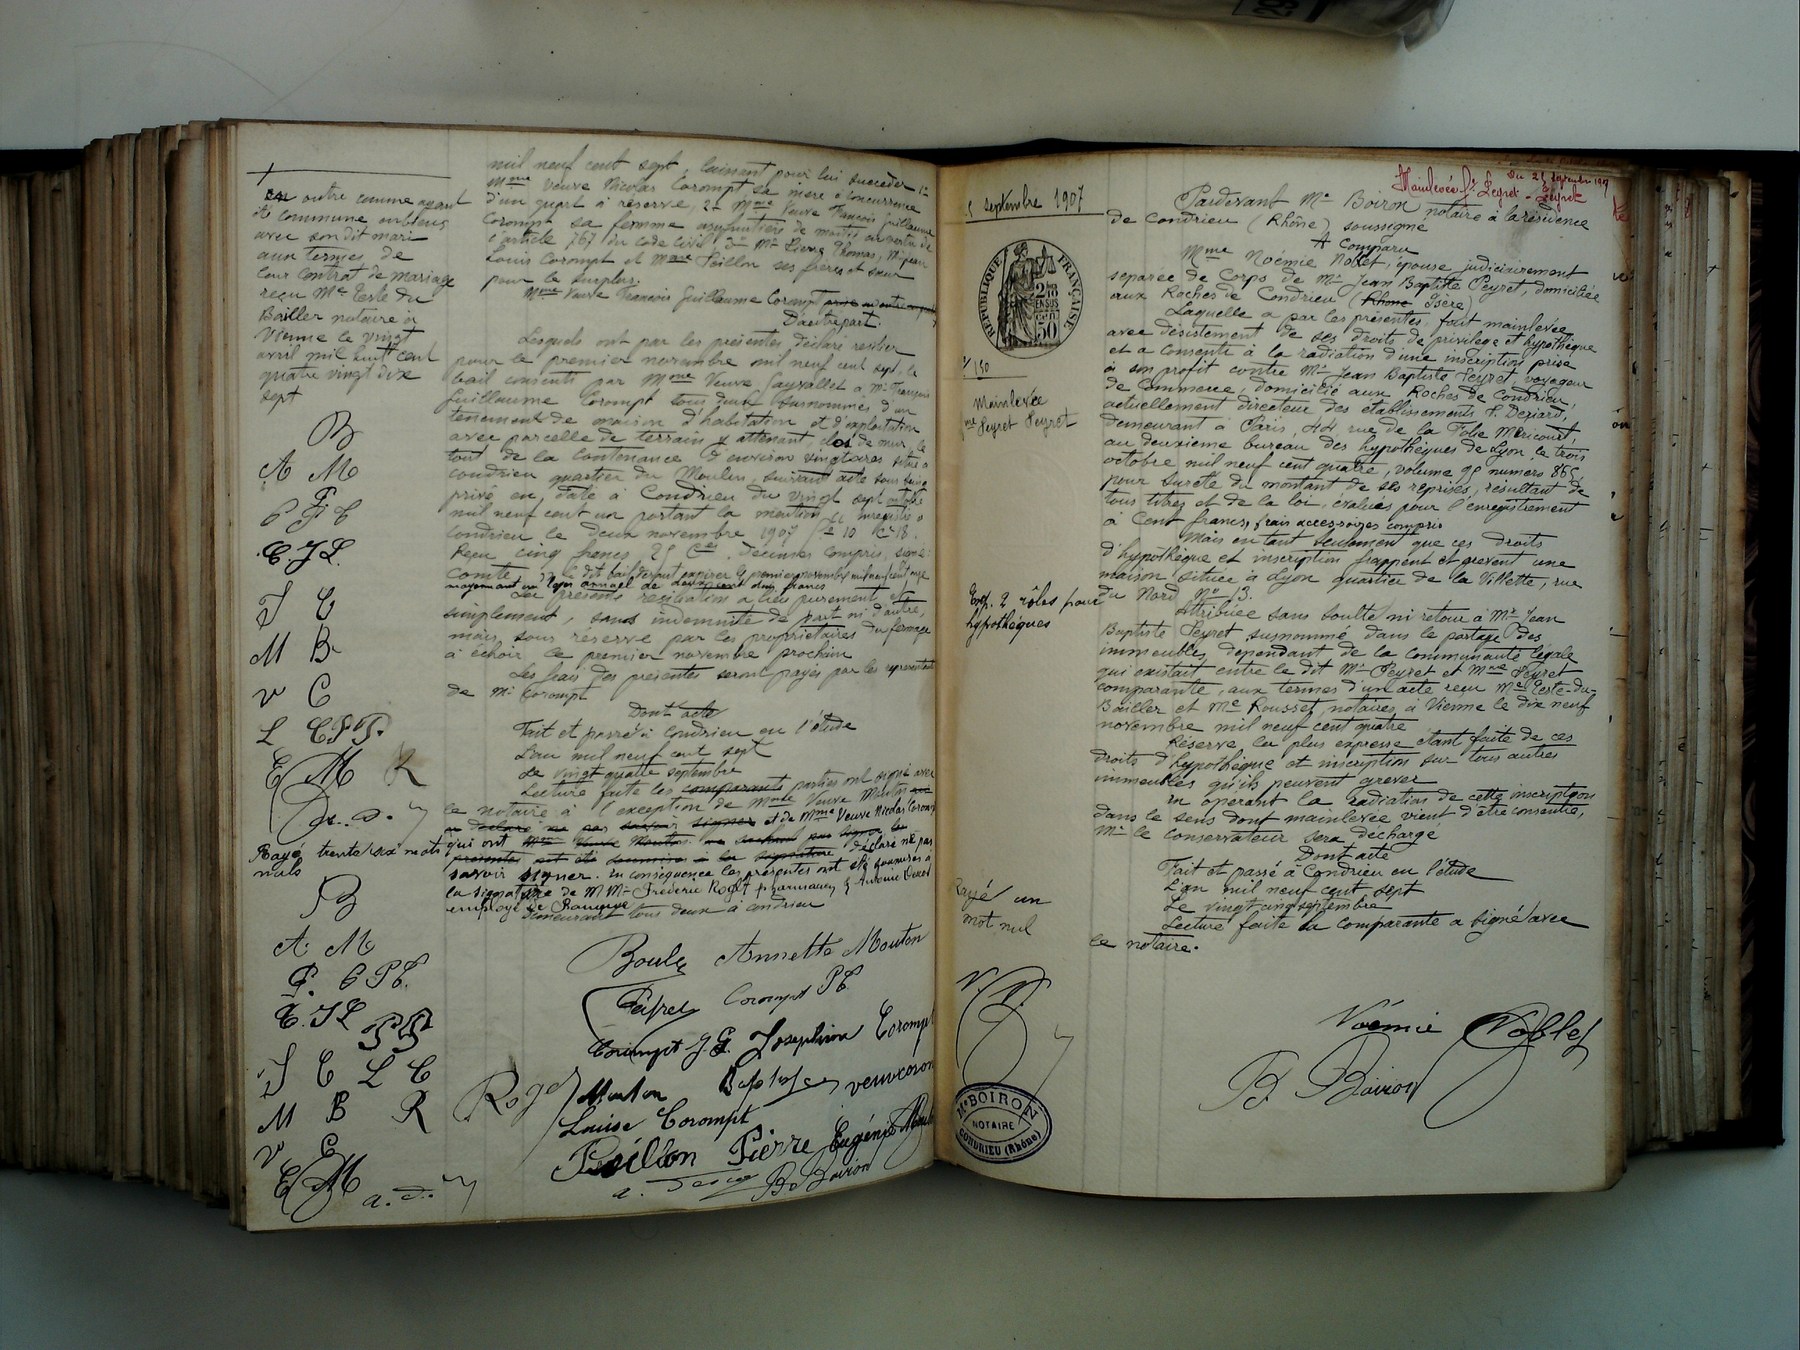 en outre comme ayant
été commune en biens
avec son dit mari
aux termes de
leur contrat de mariage
reçu Me Teste du
Bailler notaire à
Vienne le vingt
avril mil huit cent
quatre vingt dix
sept
B
A M
P C
C J G.
J C
M B
V C
L C P P.
E M R
Rayé trente six mots
nuls
B
A M
P. C P C.
C. J G P P
J C L C
M B R
V C
E M a. d.
mil neuf cent sept, laissant pour lui succéder 1°
Mme Veuve Nicolas Corompt sa mère à concurrence
d'un quart à réserve, 2° Mme Veuve François Guillaume
Corompt sa femme usufruitière de moitié en vertu de
l'article 767 du Code Civil, 3° Mr Pierre Thomas, Mr Jean
Louis Corompt et Mme Peillon ses frères et sœur
pour le surplus.
Mme Veuve François Guillaume Corompt
D'autre part.
Lesquels ont par les présentes déclaré résilier
pour le premier novembre mil neuf cent sept, le
bail consenti par Mme Veuve Fayrallet à Mr François
Guillaume Corompt tous deux susnommés d'un
tenement de maison d'habitation et d'exploitation
avec parcelle de terrain y attenant, clos de mur, le
tout de la contenance d'environ vingt ares situé à
Condrieu quartier du Moulin, suivant acte sous seing
privé en date à Condrieu du vingt sept octobre
mil neuf cent un portant la mention "Enregistré à
Condrieu le deux novembre 1907 fo 10 Ce 18.
Reçu cinq francs 25 Ces. décimes compris, signé:
Comte" le dit bail devant expirer le premier novembre mil neuf cent onze
moyennant un loyer annuel de deux cent dix francs
La présente résiliation a lieu purement et
simplement, sans indemnité de part ni d'autre,
mais sous réserve par les propriétaires du fermage
à échoir le premier novembre prochain
Les frais des présentes seront payés par les représentants
de Mr Corompt
Dont acte
Fait et passé à Condrieu en l'étude
L'an mil neuf cent sept
Le vingt quatre septembre
Lecture faite les comparants parties ont signé avec
le notaire à l'exception de Mme Veuve Mouton qui
a déclaré ne pas savoir signer et de Mme Veuve Nicolas Corompt
qui ont Mme Veuve Mouton ne sachant pas signer les
présentes ont été soumises à la signature déclaré ne pas
savoir signer. En conséquence les présentes ont été soumises à
la signature de MMrs Frédéric Roget pharmacien & Antoine
employé de Banque
demeurant tous deux à Condrieu
Boule Annette Mouton
Corompt P C
Corompt J G Joséphine Corompt
Roget Mouton veuve corom
Louise Corompt
Peillon Pierre Eugénie
B. Boiron
Du 25 Septembre 1907
Mainlevée Peyret Peyret
septembre 1907
RÉPUBLIQUE FRANÇAISE
2/10 EN SUS
50
Mainlevée
Mme Peyret Peyret
Exp. 2 rôles pour
hypothèques
Rayé un
mot nul
Pardevant Me Boiron notaire à la résidence
de Condrieu (Rhône) soussigné
A Comparu
Mme Noémie Noblet, épouse judiciairement
séparée de Corps de Mr Jean Baptiste Peyret, domiciliée
aux Roches de Condrieu (Rhône Isère)
Laquelle a par les présentes fait mainlevée
avec désistement de ses droits de privilège et hypothèque
et a consenti à la radiation d'une inscription prise
à son profit contre Mr Jean Baptiste Peyret, voyageur
de Commerce, domicilié aux Roches de Condrieu,
actuellement directeur des établissements F. Deriard,
demeurant à Paris, rue de la Folie Méricourt,
au deuxième bureau des hypothèques de Lyon, le trois
octobre mil neuf cent quatre, volume 98 numero 865,
pour sureté du montant de ses reprises, résultant de
tous titres et de la loi, évalués pour l'enregistrement
à Cent francs, frais accessoires compris
Mais en tant seulement que ces droits
d'hypothèque et inscription frappent et grèvent une
maison située à Lyon quartier de la Villette, rue
du Nord No 13.
Attribuée sans soulte ni retour à Mr Jean
Baptiste Peyret susnommé dans le partage des
immeubles dépendant de la communauté légale
qui existait entre le dit Mr Peyret et Mme Peyret
comparante, aux termes d'un acte reçu Me Teste-du-
Bailler et Me Rousset, notaires à Vienne le dix neuf
novembre mil neuf cent quatre
Réserve la plus expresse étant faite de ces
droits d'hypothèque et inscription sur tous autres
immeubles qu'ils peuvent grever
En opérant la radiation de cette inscription
dans le sens dont mainlevée vient d'être consentie,
Mr le Conservateur sera déchargé
Dont acte
Fait et passé à Condrieu en l'étude
L'an mil neuf cent sept
Le vingt cinq septembre
Lecture faite la comparante a signé avec
le notaire.
N. N.
Noémie Noblet
B. Boiron
Me BOIRON
NOTAIRE
CONDRIEU (Rhône)